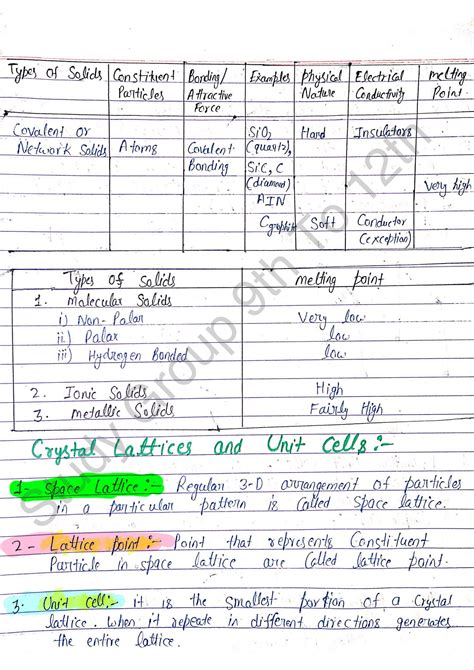 Types of Solids Constituent Particles Bonding/ Attractive Force Examples Physical Nature Electrical Conductivity melting Point.
Covalent or Network Solids Atoms Covalent Bonding SiO₂ (quartz), SiC, C (diamond) AlN Hard Insulators
Very high
C graphite Soft Conductor (exception)
Types of Solids melting point
1. Molecular Solids
i) Non-Polar Very low
ii) Polar low
iii) Hydrogen Bonded low
2. Ionic Solids High
3. Metallic Solids Fairly High
Crystal Lattices and Unit Cells:-
1- Space Lattice:- Regular 3-D arrangement of particles
in a particular pattern is Called Space lattice.
2- Lattice point:- Point that represents Constituent
Particle in space lattice are Called lattice point.
3. Unit cell:- it is the smallest portion of a Crystal
lattice. When it repeate in different directions generates
the entire lattice.
Study Group 9th To 12th